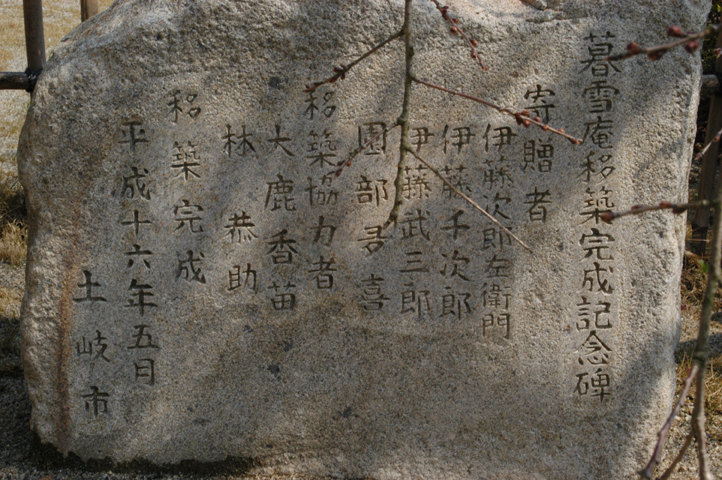 暮雪庵移築完成記念碑
寄贈者
伊藤次郎左衛門
伊藤千次郎
伊藤武三郎
園部多喜
移築協力者
大鹿香苗
林恭助
移築完成
平成十六年五日
土岐市